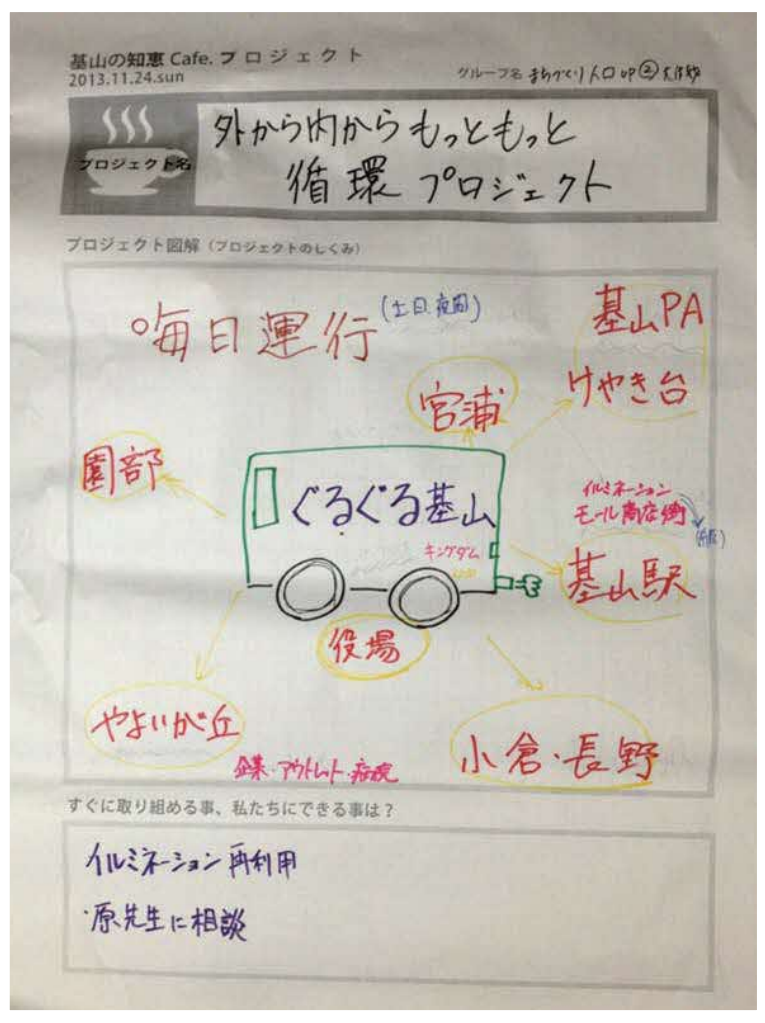 基山の知恵 Cafe. プロジェクト
2013.11.24.sun
グループ名 まちづくり人口up②
プロジェクト名
外から内からもっともっと
循環プロジェクト
プロジェクト図解（プロジェクトのしくみ）
毎日運行(土日.夜間)
基山PA
けやき台
宮浦
園部
ぐるぐる基山
キングダム
イルミネーション
モール商店街
基山駅
役場
やよいが丘
小倉・長野
企業・アウトレット・病院
すぐに取り組める事、私たちにできる事は？
イルミネーション再利用
・原先生に相談